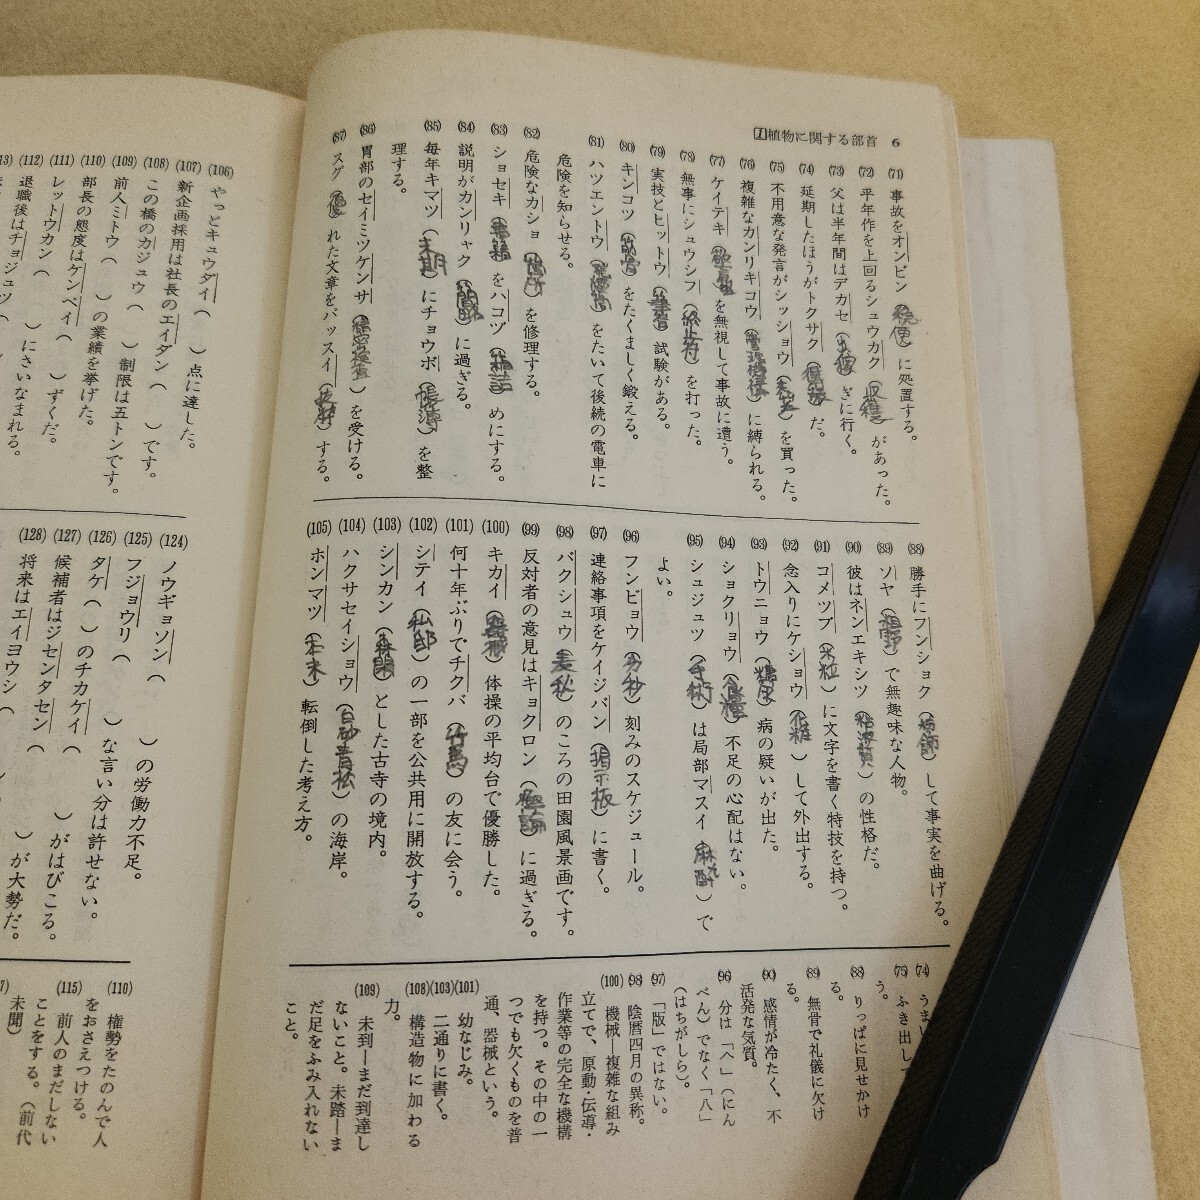 1 植物に関する部首 6
(71) 事故をオンビン(穏便)に処置する。
(72) 平年作を上回るシュウカク(収穫)があった。
(73) 父は半年間はデカセ(出稼)ぎに行く。
(74) 延期したほうがトクサク(得策)だ。
(75) 不用意な発言がシッショウ(失笑)を買った。
(76) 複雑なカンリキコウ(管理機構)に縛られる。
(77) ケイテキ(警笛)を無視して事故に遭う。
(78) 無事にシュウシフ(終止符)を打った。
(79) 実技とヒットウ(筆答)試験がある。
(80) キンコツ(筋骨)をたくましく鍛える。
(81) ハツエントウ(発煙筒)をたいて後続の電車に
危険を知らせる。
(82) 危険なカショ(箇所)を修理する。
(83) ショセキ(書籍)をハコヅ(箱詰)めにする。
(84) 説明がカンリャク(簡略)に過ぎる。
(85) 毎年キマツ(末期)にチョウボ(帳簿)を整
理する。
(86) 胃部のセイミツケンサ(精密検査)を受ける。
(87) スグ(優)れた文章をバッスイ(抜粋)する。
(88) 勝手にフンショク(粉飾)して事実を曲げる。
(89) ソヤ(粗野)で無趣味な人物。
(90) 彼はネンエキシツ(粘液質)の性格だ。
(91) コメツブ(米粒)に文字を書く特技を持つ。
(92) 念入りにケショウ(化粧)して外出する。
(93) トウニョウ(糖尿)病の疑いが出た。
(94) ショクリョウ(食糧)不足の心配はない。
(95) シュジュツ(手術)は局部マスイ(麻酔)で
よい。
(96) フンビョウ(分秒)刻みのスケジュール。
(97) 連絡事項をケイジバン(掲示板)に書く。
(98) バクシュウ(麦秋)のころの田園風景画です。
(99) 反対者の意見はキョクロン(極論)に過ぎる。
(100) キカイ(器械)体操の平均台で優勝した。
(101) 何十年ぶりでチクバ(竹馬)の友に会う。
(102) シテイ(私邸)の一部を公共用に開放する。
(103) シンカン(森閑)とした古寺の境内。
(104) ハクサセイショウ(白砂青松)の海岸。
(105) ホンマツ(本末)転倒した考え方。
(74) うまし
う。
(75) ふき出して
(88) りっぱに見せかけ
る。
(89) 無骨で礼儀に欠け
る。
(90) 感情が冷たく、不
活発な気質。
(96) 分は「𠆢」(にん
べん)でなく「八」
(はちがしら)。
(97) 「版」ではない。
(98) 陰暦四月の異称。
(100) 機械―複雑な組み
立てで、原動・伝導・
作業等の完全な機構
を持つ。その中の一
つでも欠くものを普
通、器械という。
(101) 幼なじみ。
(103) 二通りに書く。
(108) 構造物に加わる
力。
(109) 未到―まだ到達し
ないこと。未踏―ま
だ足をふみ入れない
こと。
(106) やっとキュウダイ( )点に達した。
(107) 新企画採用は社長のエイダン( )です。
(108) この橋のカジュウ( )制限は五トンです。
(109) 前人ミトウ( )の業績を挙げた。
(110) 部長の態度はケンペイ( )ずくだ。
(111) レットウカン( )にさいなまれる。
(112) 退職後はチョジュツ(
(124) ノウギョソン( )の労働力不足。
(125) フジョウリ( )な言い分は許せない。
(126) タケ( )のチカケイ( )がはびこる。
(127) 候補者はジセンタセン( )が大勢だ。
(128) 将来はエイヨウシ(
(110) 権勢をたのんで人
をおさえつける。
(115) 前人のまだしない
ことをする。(前代
未聞)